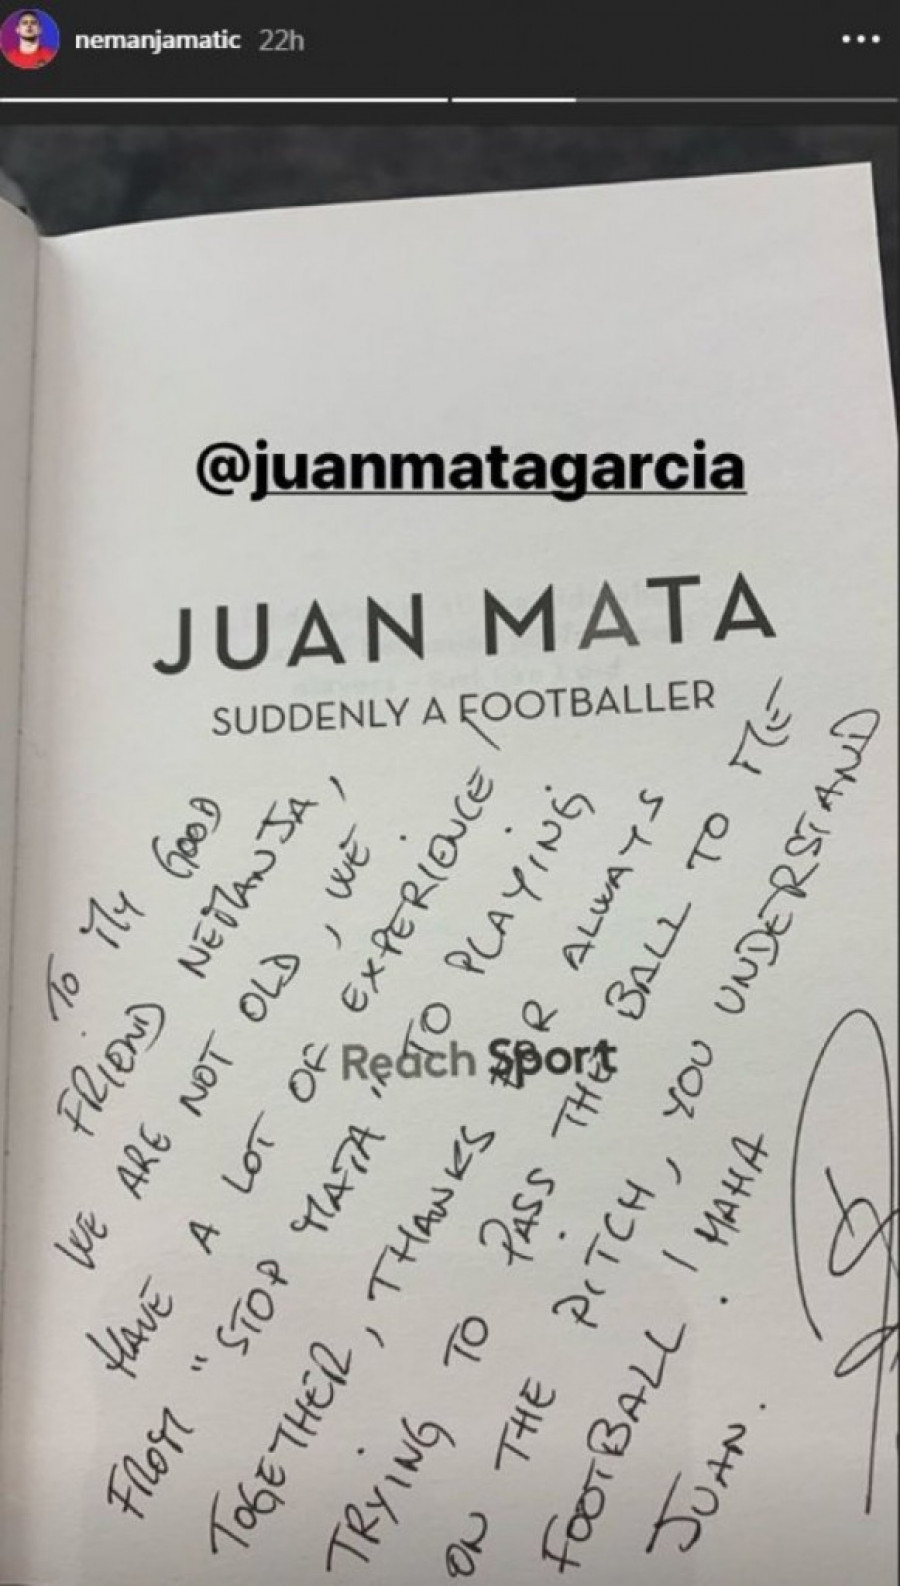 nemanjamatic 22h
@juanmatagarcia
JUAN MATA
SUDDENLY A FOOTBALLER
TO MY GOOD
FRIEND NEMANJA,
WE ARE NOT OLD, WE
HAVE A LOT OF EXPERIENCE!
FROM "STOP MATA" TO PLAYING
TOGETHER, THANKS FOR ALWAYS
TRYING TO PASS THE BALL TO ME
ON THE PITCH, YOU UNDERSTAND
FOOTBALL! MAHA
JUAN.
Reach Sport